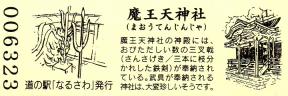 006323
道の駅「なるさわ」発行
魔王天神社
(まおうてんじんじゃ)
魔王天神社の神殿には、
おびただしい数の三叉戟
(さんさげき/三本に枝分
かれした鉄剣)が奉納され
ている。武具が奉納される
神社は、大変珍しいそうです。